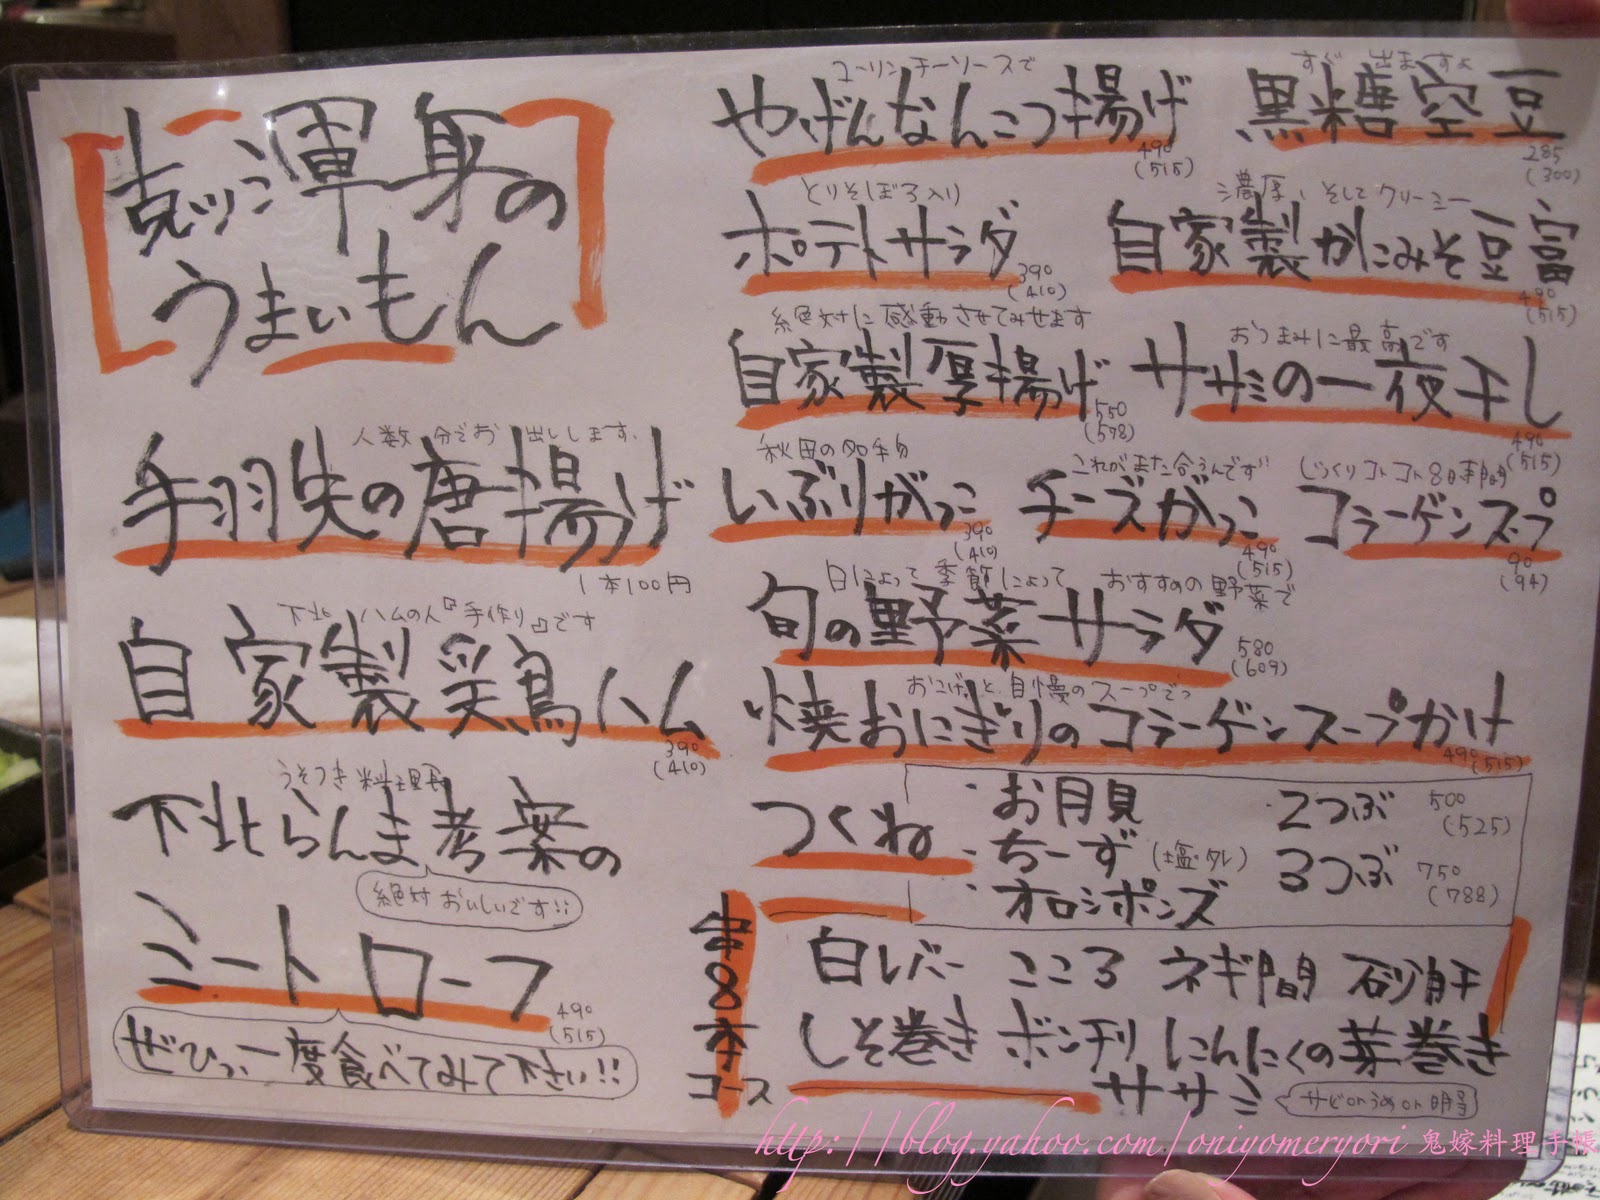 渾身の
うまいもん
人数分でお出しします。
手羽先の唐揚げ
1本100円
下北ハムの人『手作り』です
自家製 乳鳥ハム
390
(410)
うそつき料理長
下北らんま考案の
絶対おいしいです!!
ミートローフ
490
(515)
ぜひっ、一度食べてみて下さい!!
ユーリンチーソースで
やげんなんこつ揚げ
490
(515)
すぐ出ますよ
黒糖空豆
285
(300)
とりそぼろ入り
ポテトサラダ
390
(410)
濃厚、そしてクリーミー
自家製かにみそ豆富
490
(515)
絶対に感動させてみせます
自家製厚揚げ
550
(578)
おつまみに最高です
ササミの一夜干し
490
(515)
秋田の名物
いぶりがっこ
390
(410)
これがまた合うんです
チーズがっこ
490
(515)
じっくりコトコト8時間
コラーゲンスープ
90
(94)
日によって季節によって おすすめの野菜で
旬の野菜サラダ
580
(609)
おこげと自慢のスープでっ
焼おにぎりのコラーゲンスープかけ
490
(515)
つくね
・お月見
・ちーず(塩・タレ)
・オロシポンズ
2つぶ 500
(525)
3つぶ 750
(788)
串8本コース
白レバー こころ ネギ間 砂肝
しそ巻き ボンチリ にんにくの芽巻き
ササミ
サビorうめor明号
http://blog.yahoo.com/oniyomeryori 鬼嫁料理手帳